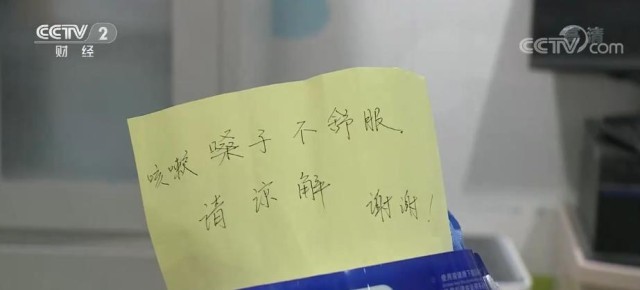 CCTV 2
财经
CCTV.com
清
咳嗽嗓子不舒服
请谅解 谢谢!